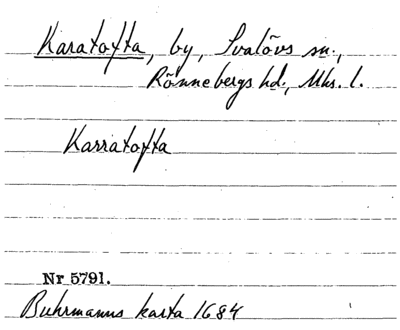 Karatofta, by, Svalövs sn.,
Rönnebergs hd., Mks. l.
Karratofta
Nr 5791.
Buhrmanns karta 1684